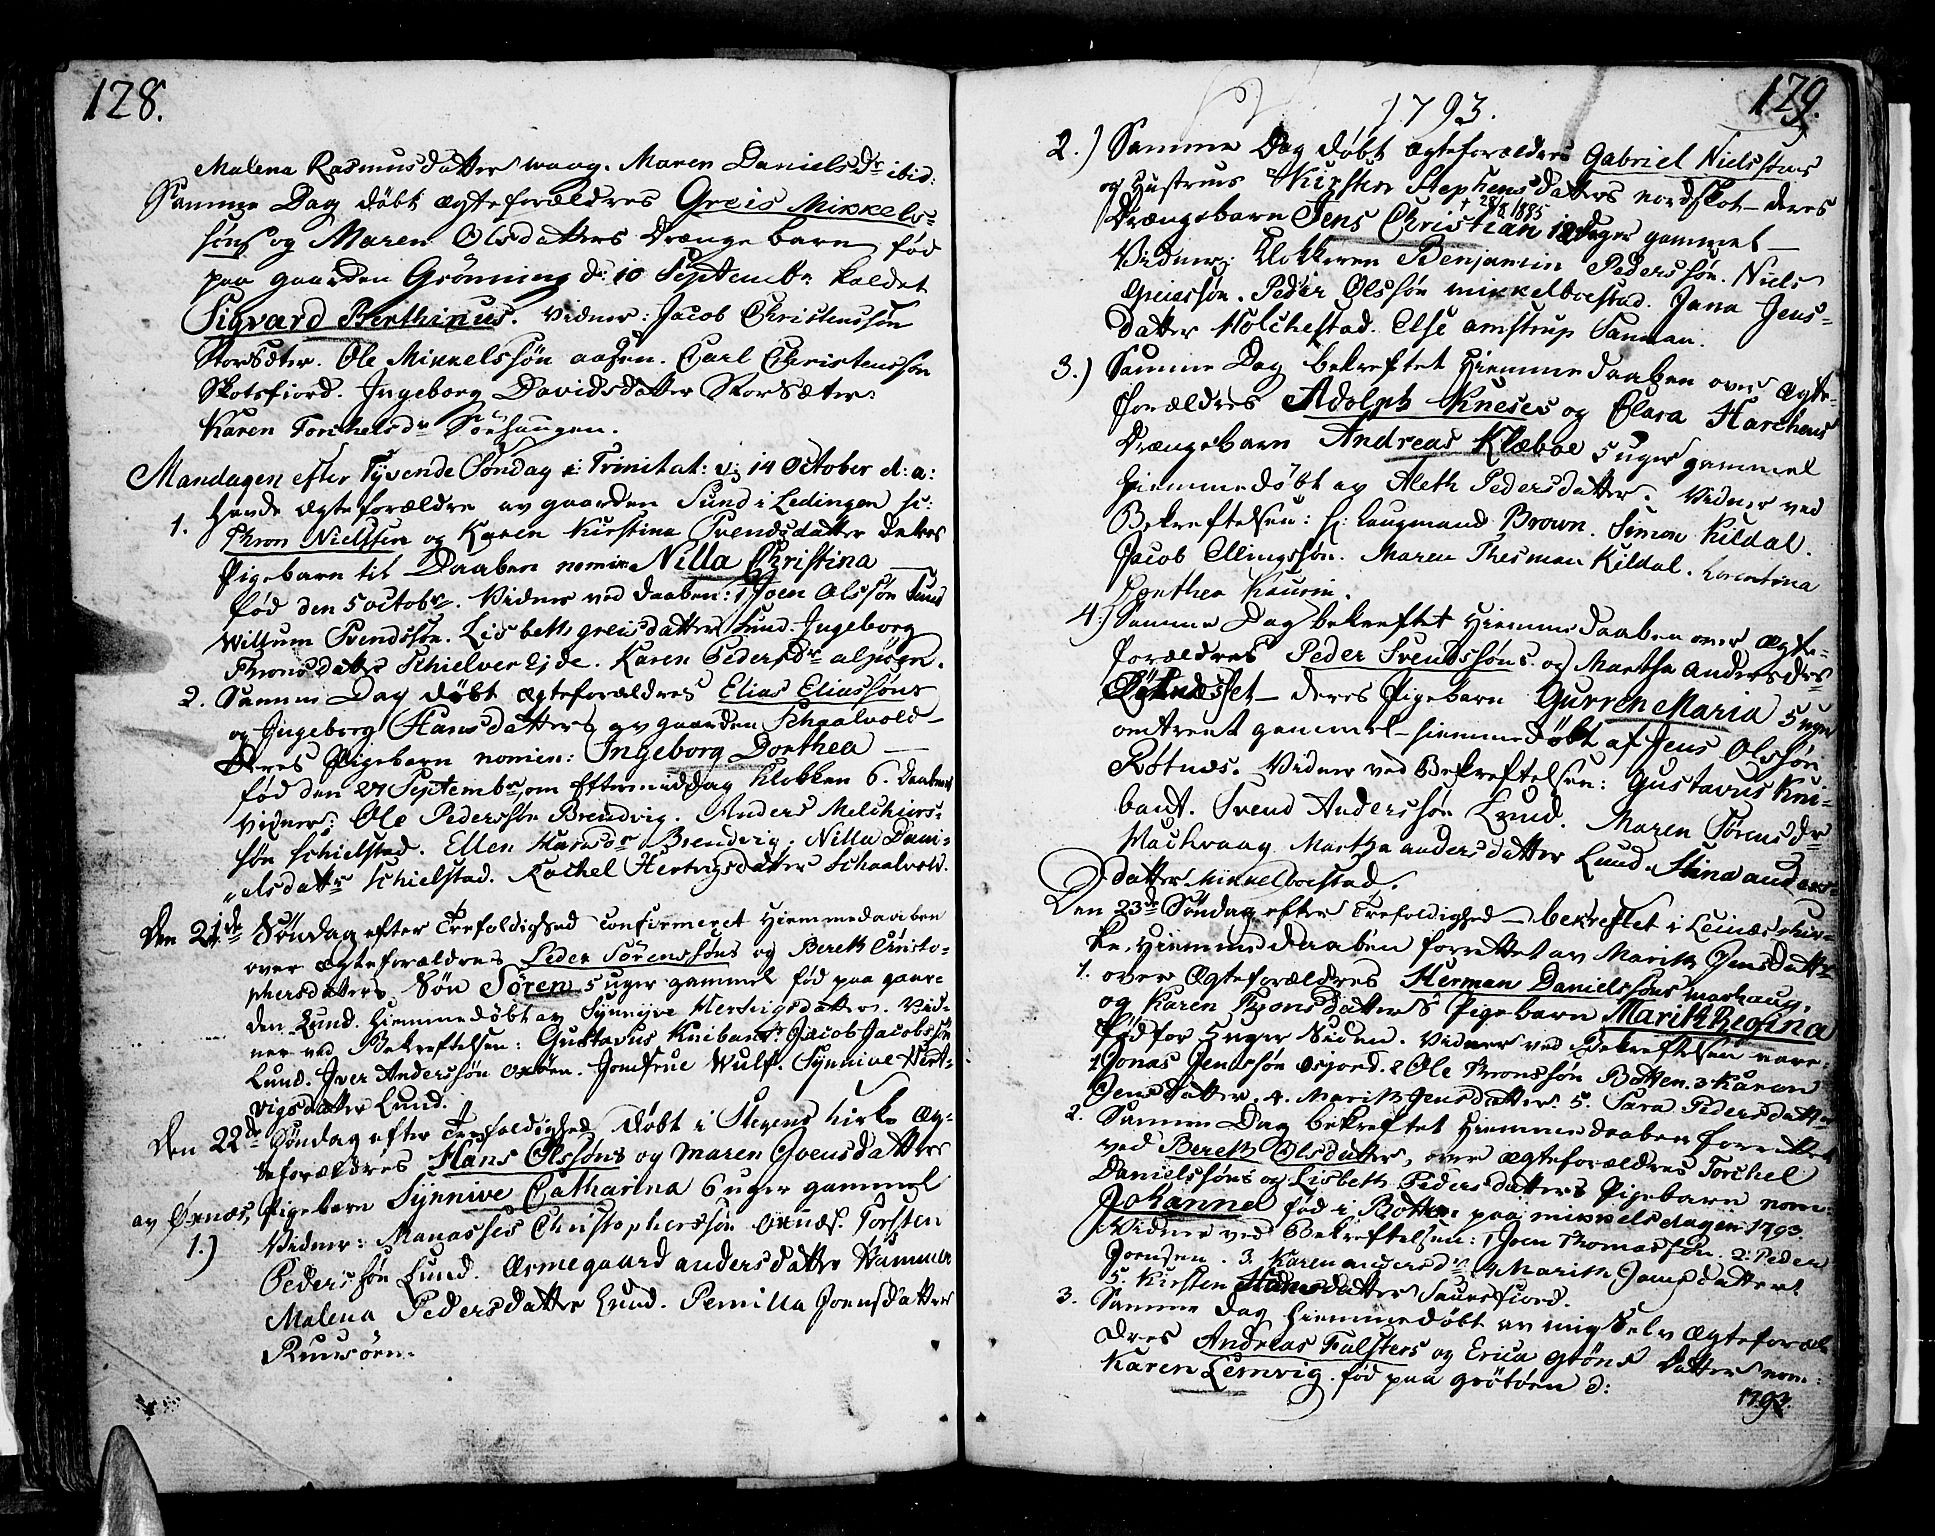 128.
Malena Rasmusdatter waag. Maren Daniels Dr ibid:
Samme Dag døbt ægteforældres Greis Mikkels-
søns og Maren Olsdatters Drænge barn, fød
paa gaarden Grønning d: 10 Septembr kaldet
Sigvard Berthinus. Vidner: Jacob Christenssøn
Storsæter. Ole Mikkelssøn aasen. Carl Christenssøn
Skotsfiord. Ingeborg Davidsdatter Storsæter.
Karen Torchelsdr Sørhaugen.
Mandagen efter Tyvende Søndag e: Trinitat: v: 14 October d: a:
havde ægteforældre av gaarden Sund i Lødingen sc:
1. Thron Nielssøn og Karen Kirstina Svendsdatter deres
Pigebarn til Daaben nomine Nilla Christina
fød den 5 octobr. Vidner ved daaben: 1 Joen Olssøn Sund
Willum Svendssøn. Lisbeth greisdatter Sund. Ingeborg
Thronsdatter Schielver Eide. Karen Pedersdr
2. Samme Dag døbt ægteforældres Elias Eliassøns
og Ingeborg Hansdatters av gaarden Schaalvold
Deres Pigebarn nomin: Ingeborg Dorthea
fød den 27 Septembr om Eftermiddag Klokken 6. Daabens
Vidner: Ole Pederssøn Brendvig. Anders Melchiors-
søn Schielstad. Ellen Hansdr Brendvig. Nilla Dani-
elsdattr Schielstad. Rachel Hertvigsdatter Schaalvold.
Den 21de Søndag efter Trefoldighed confirmeret Hiemmedaaben
over ægteforældres Peder Sørenssøns og Bereth Christo-
phersdatters Søn Søren 5 uger gammel fød paa gaar-
den Lund. Hiemmedøbt av Synnyve Hertvigsdatter. Vid-
ner ved Bekreftelsen: Gustavus Knibandt. Jacob Jacobssøn
Lund. Iver Anderssøn oxøen. Jomfrue Wulf. Synnive Hert-
vigsdatter Lund.
Den 22de Søndag efter Trefoldighed døbt i Stegens kirke æg-
teforældres Hans Olssøns og Maren Joensdatters
av Øxnæs, Pigebarn Synnive Catharina 6 uger gammel
1.) Vidner: Manasses Christopherssøn oxnæs. Torsten
Pederssøn Lund. Ermegaard andersdatter
Malena Pedersdatter Lund. Pernilla Joensdatter

179.
1793.
2.) Samme Dag døbt ægteforældres Gabriel Nielssøns
og Hustrues Kirsten Stephensdatters nordskot – deres
† 28/8 1885
Drængebarn Jens Christian 12 dager gammel –
Vidner: Klokkeren Benjamin Pederssøn. Niels
Greissøn. Peder Olssøn mikkelboestad. Jana Jens-
datter Holchestad. Else amstrup Sauman.
3.) Samme Dag bekreftet Hiemmedaaben over ægte-
forældres Adolph Kneses og Clara Harchens
Drængebarn Andreas Klæboe 5 uger gammel
hiemmedøbt av Aleth Pedersdatter. Vidner ved
Bekreftelsen: h: Laugmand Brown. Simon Kildal.
Jacob Ellingssøn. Maren Thesman Kildal. Lorentina
Dorthea Kaurin.
4.) Samme Dag bekreftet Hiemmedaaben over ægte-
forældres Peder Svendssøns og Martha andersdrs
deres Pigebarn Gurren Maria 5 uger
omtrent gammel – hiemmedøbt af Jens Olssøn
Røtnæs. Vidner ved Bekreftelsen: Gustavus Kni-
bandt. Svend Anderssøn Lund. Maren Sørensdr
Wachvaag. Martha andersdatter Lund. Stina anders-
datter Mikkelboestad.
Den 23de Søndag efter Trefoldighed – bekreftet i Leinæs kir-
ke, Hiemmedaaben forrettet av Marith Jensdatter
1. over ægteforældres Herman Danielssøns Markaug,
og Karen Thronsdatters Pigebarn Marith Regina
fød for 5 uger siden. Vidner ved Bekreftelsen vare:
1 Jonas Jenssøn osjord. 2 Ole Thronssøn Botten. 3 Karen
Jensdatter. 4. Marith Jensdatter. 5. Sara Pedersdatter
2. Samme Dag bekreftet Hiemmedaaben forrettet
ved Bereth Olsdatter, over ægteforældres Torchel
Danielssøns og Lisbeth Pedersdatters Pigebarn nom:
Johanna fød i Botten paa mikkelsdagen 1793.
Vidner ved Bekreftelsen: 1 Joen Thomassøn. 2: Peder
Joensen. 3. Karen andersdr. 4 Marith Jonsdatter.
5. Kirsten Hansdatter Saursfiord.
3. Samme dag hiemmedøbt av mig Selv ægteforæl-
dres Andreas Falsters og Erica Grøns Datter nom:
Karen Lemvig. fød paa grøtøen d:
1793.